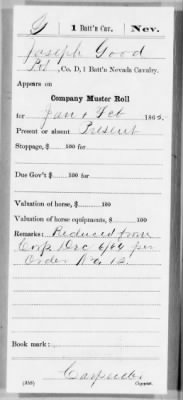 G | 1 Batt'n Cav. | Nev.
Joseph Good
Pvt, Co. D, 1 Batt'n Nevada Cavalry.
Appears on
Company Muster Roll
for Jan & Feb, 1865.
Present or absent Present
Stoppage, $ 100 for
Due Gov't $ 100 for
Valuation of horse, $ 100
Valuation of horse equipments, $ 100
Remarks: Reduced from
Corp Dec 6/64 per
Order No. 12.
Book mark:
Carpenter
(358) Copyist.